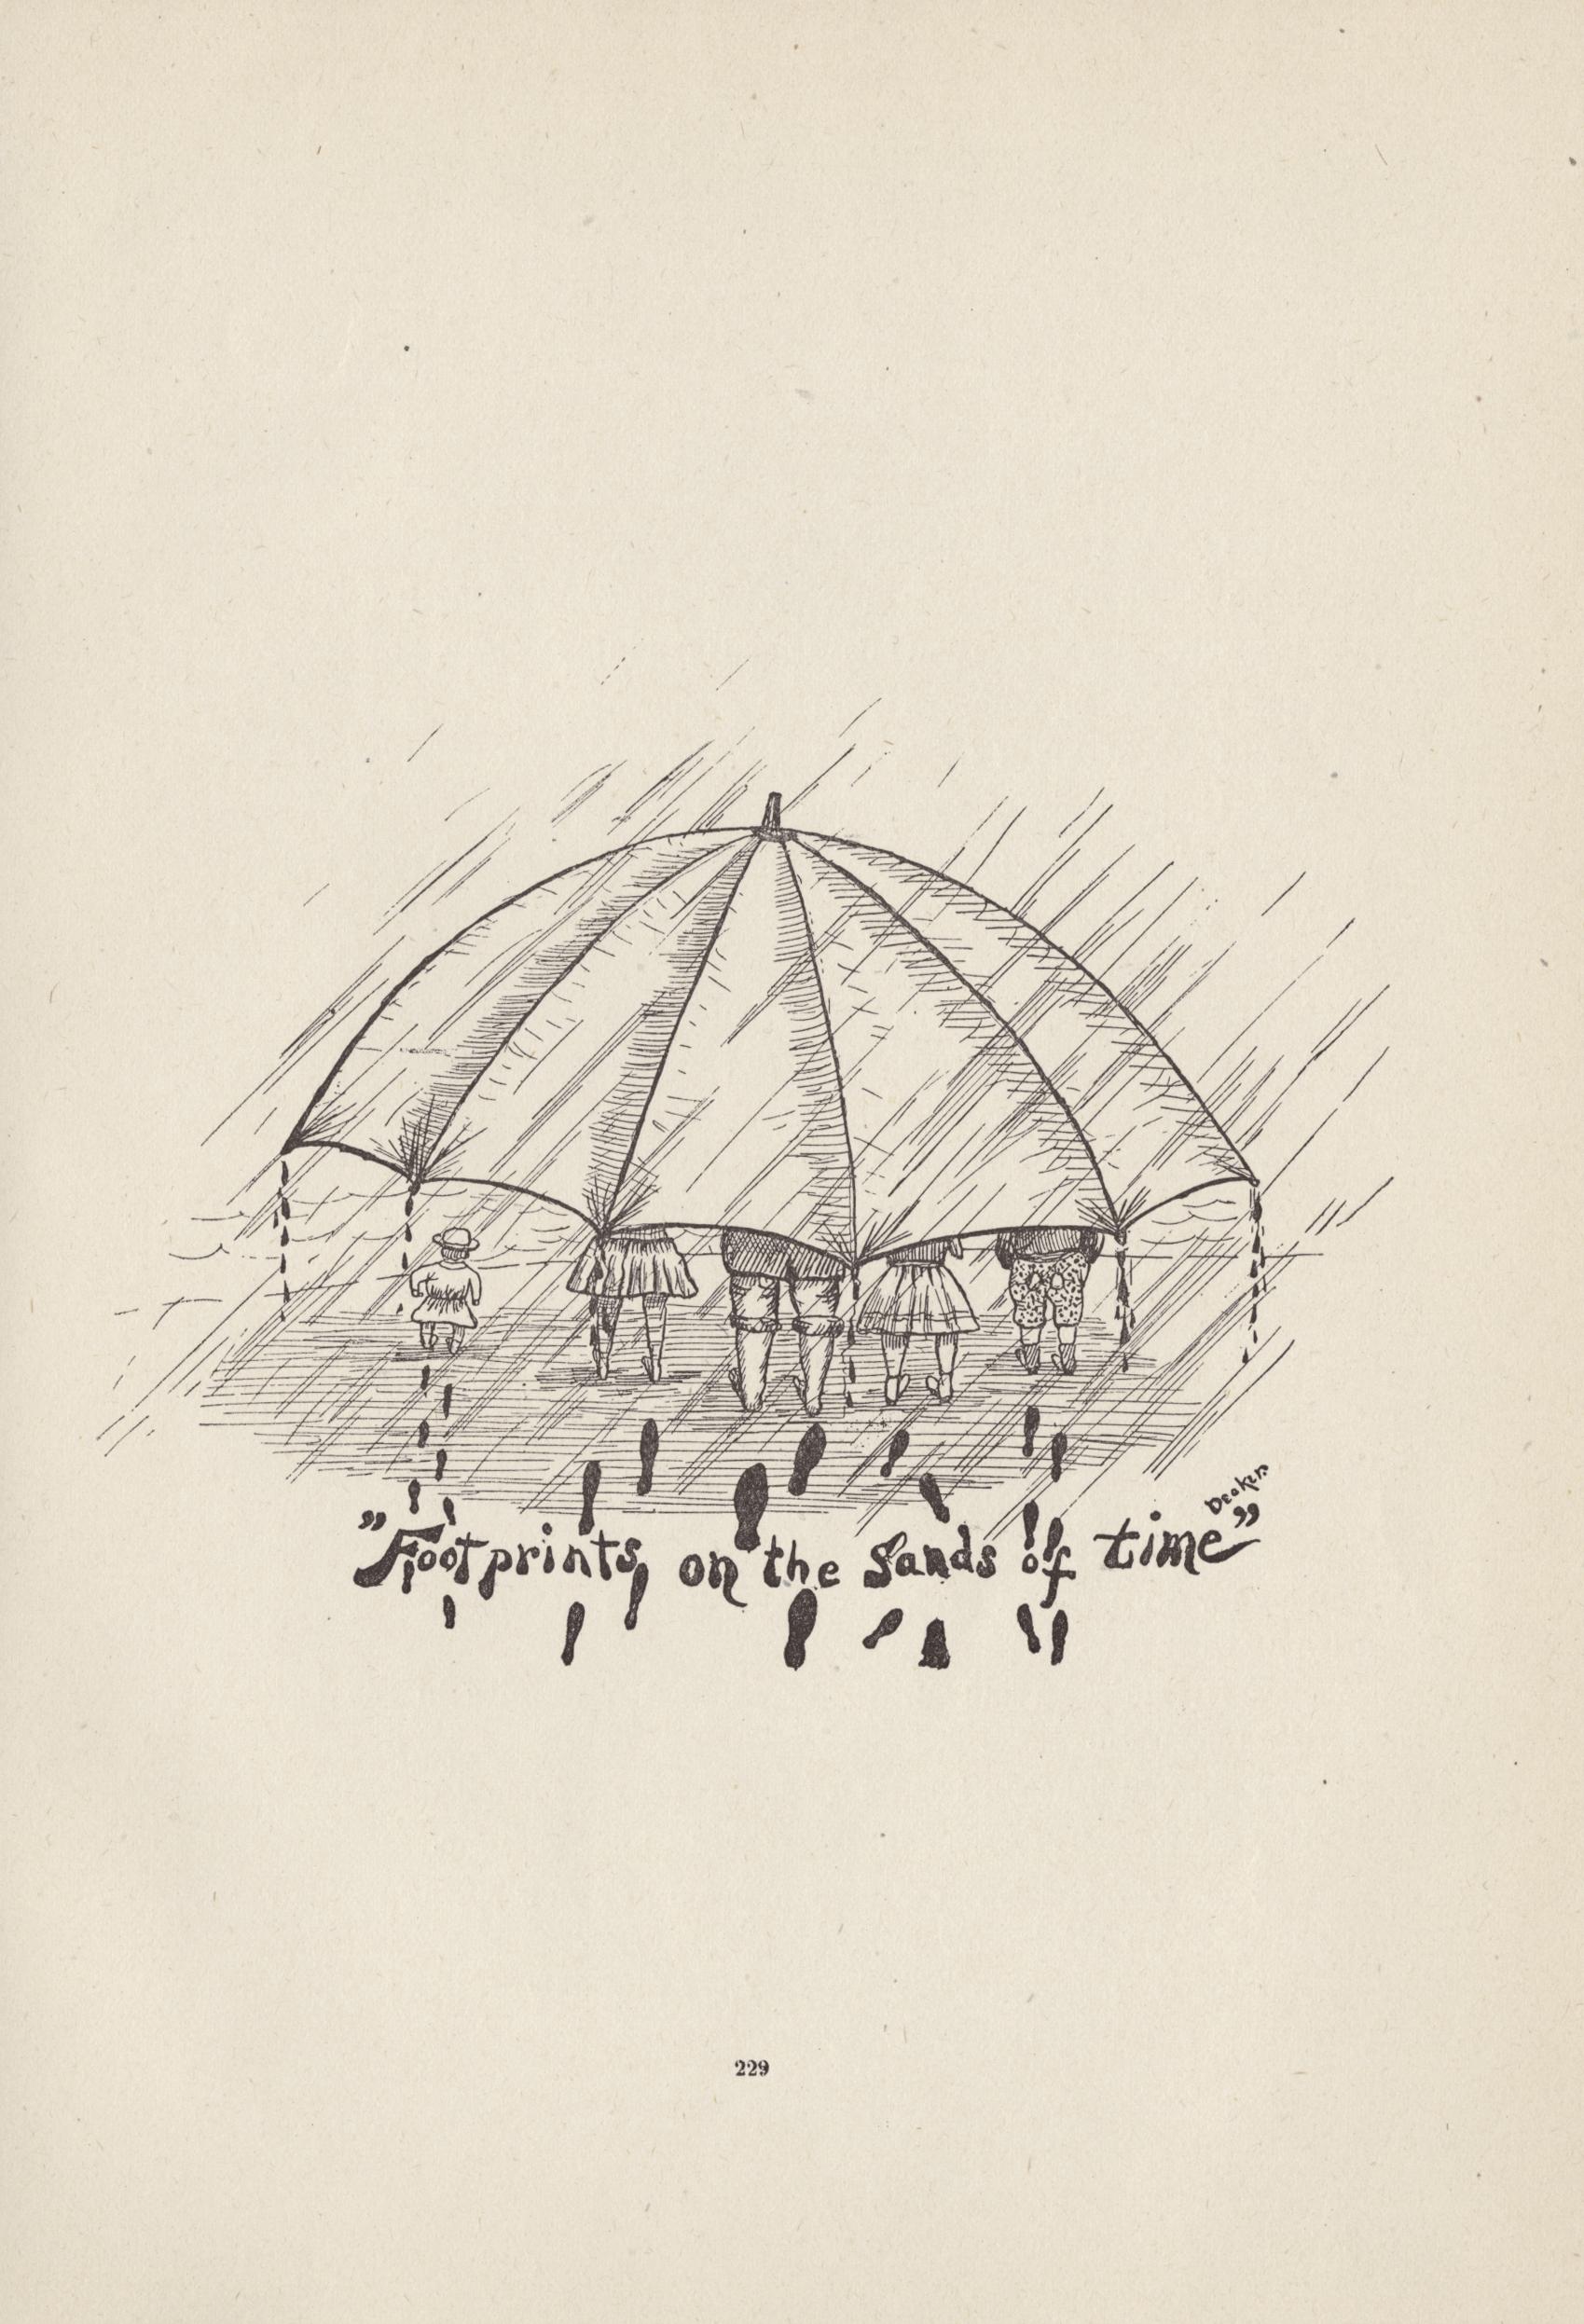 Deaken
"Footprints, on the Sands of time"
229